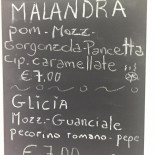 MALANDRA
pom - Mozz -
Gorgonzola - Pancetta
Cip. caramellate
€ 7,00
Glicia
Mozz - Guanciale
pecorino romano - pepe
€ 7,00